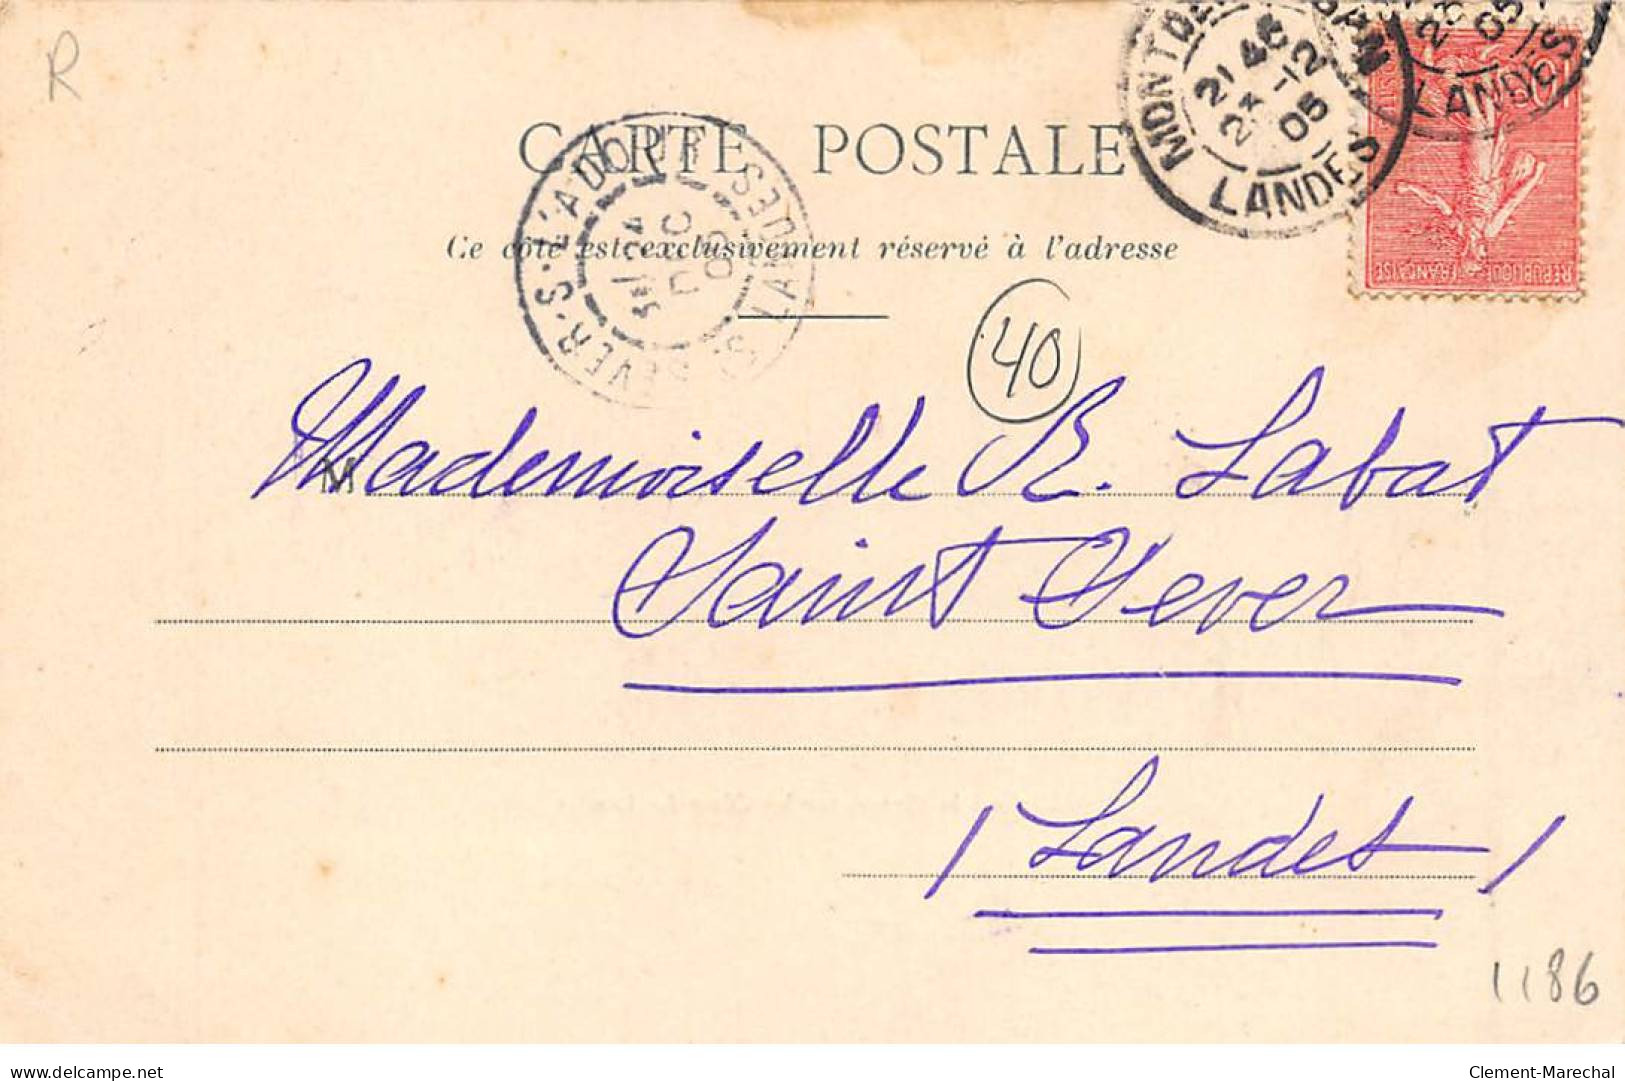 R
CARTE POSTALE
Ce côté est exclusivement réservé à l'adresse
MONT DE
21 45
23 -12
05
LANDES
05
LANDES
RÉPUBLIQUE FRANÇAISE
10
ST SEVER-S-L'ADOUR
24
DEC
05
LANDES
40
M
Mademoiselle R. Labat
Saint Sever
/ Landes /
1186
Clement-Marechal